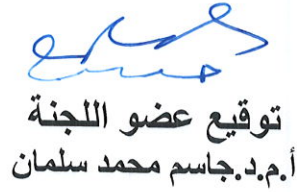 توقيع عضو اللجنة
أ.م.د.جاسم محمد سلمان